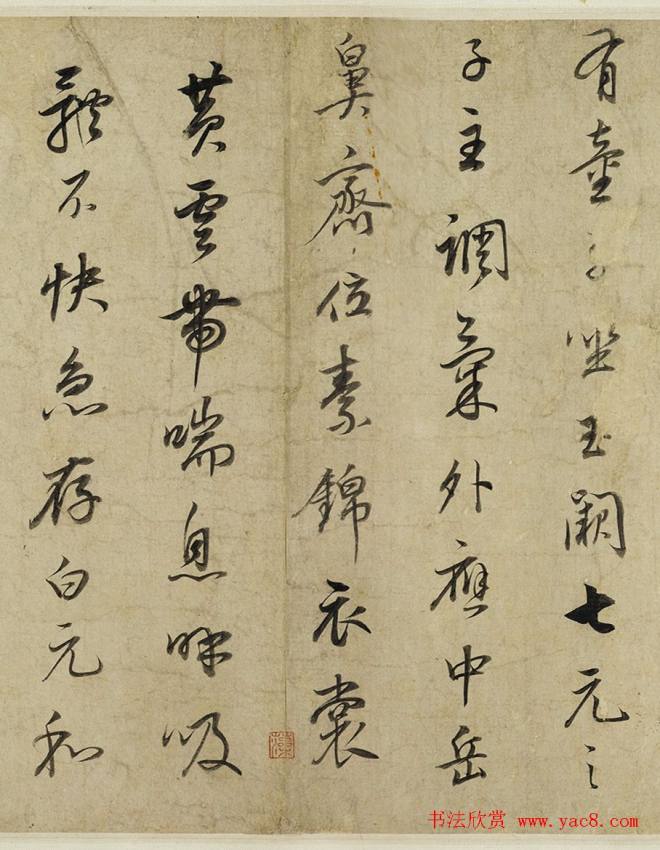 有童子坐玉闕七元之
子主調氣外應中岳
鼻齊位素錦衣裳
黃雲帶喘息呼吸
體不快急存白元和
书法欣赏 www.yac8.com